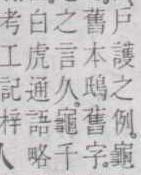 戶護之例。龜
舊本鴟舊字。
之言久。龜千
白虎通語略
考工記梓人